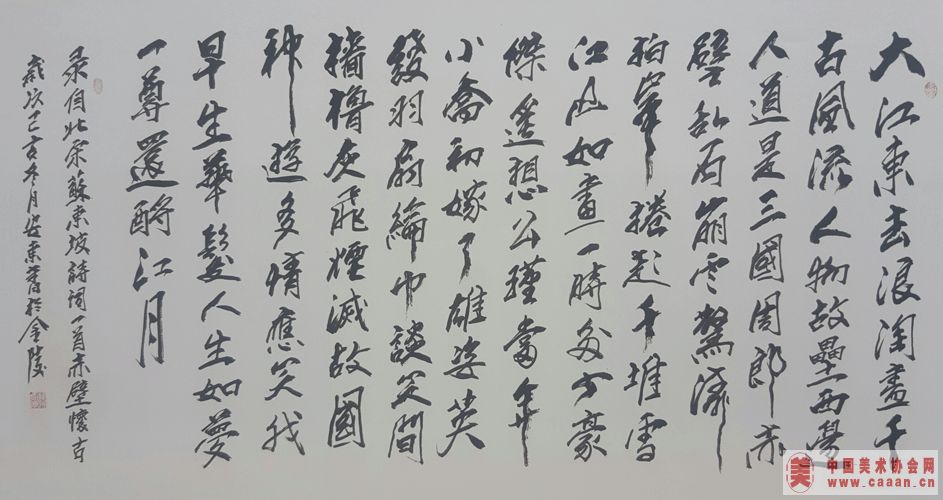 大江東去浪淘盡千
古風流人物故壘西邊
人道是三國周郎赤
壁亂石崩雲驚濤
拍岸捲起千堆雪
江山如畫一時多少豪
傑遙想公瑾當年
小喬初嫁了雄姿英
發羽扇綸巾談笑間
檣櫓灰飛煙滅故國
神遊多情應笑我
早生華髮人生如夢
一尊還酹江月
录自北宋蘇東坡詩詞一首赤壁懷古
歲次己亥冬月書於金陵
美
中国美术协会网
www.caaan.cn